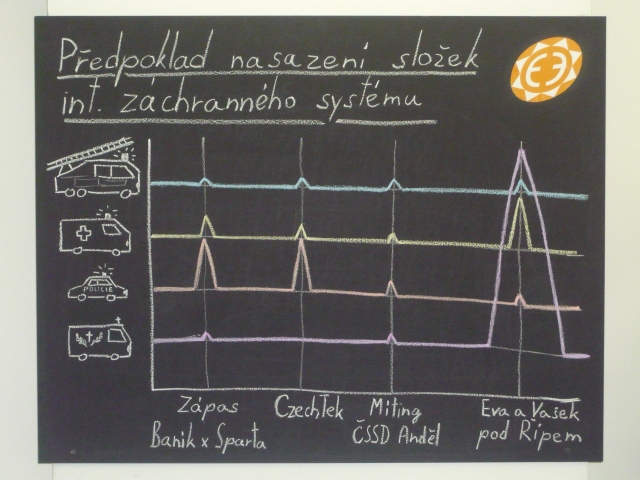 Předpoklad nasazení složek
int. záchranného systému
POLICIE
Zápas
Banik x Sparta
CzechTek
Miting
ČSSD Anděl
Eva a Vašek
pod Řípem